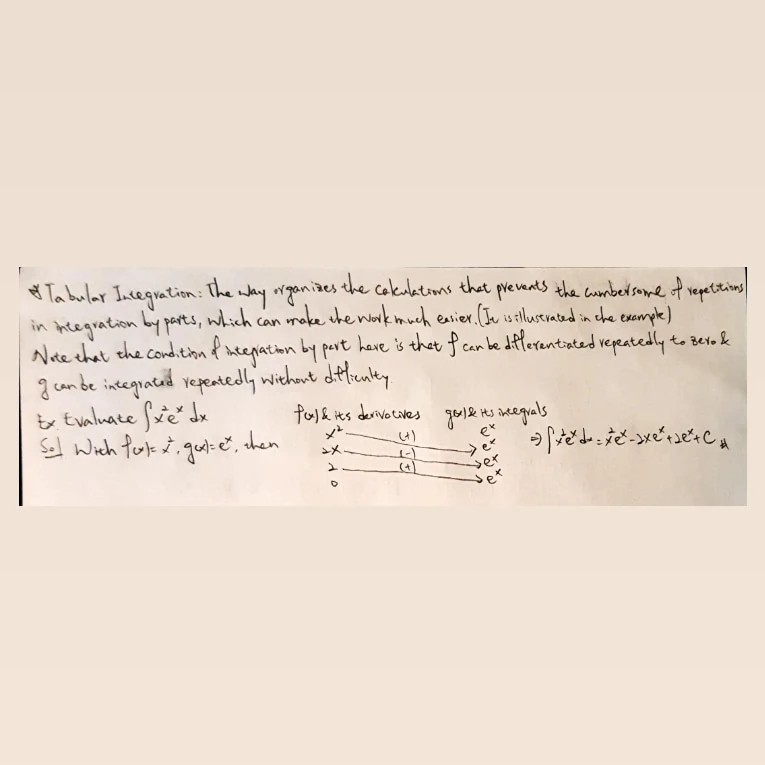 * Tabular Integration: The way organizes the calculations that prevents the cumbersome of repetitions
in integration by parts, which can make the work much easier. (It is illustrated in the example)
Note that the condition of integration by part here is that f can be differentiated repeatedly to zero &
g can be integrated repeatedly without difficulty.
Ex Evaluate ∫x²eˣ dx
Sol With f(x)=x², g(x)=eˣ, then
f(x) & its derivatives g(x) & its integrals
x² (+) eˣ
2x (-) eˣ
2 (+) eˣ
0 eˣ
⇒ ∫x²eˣ dx = x²eˣ - 2xeˣ + 2eˣ + C #